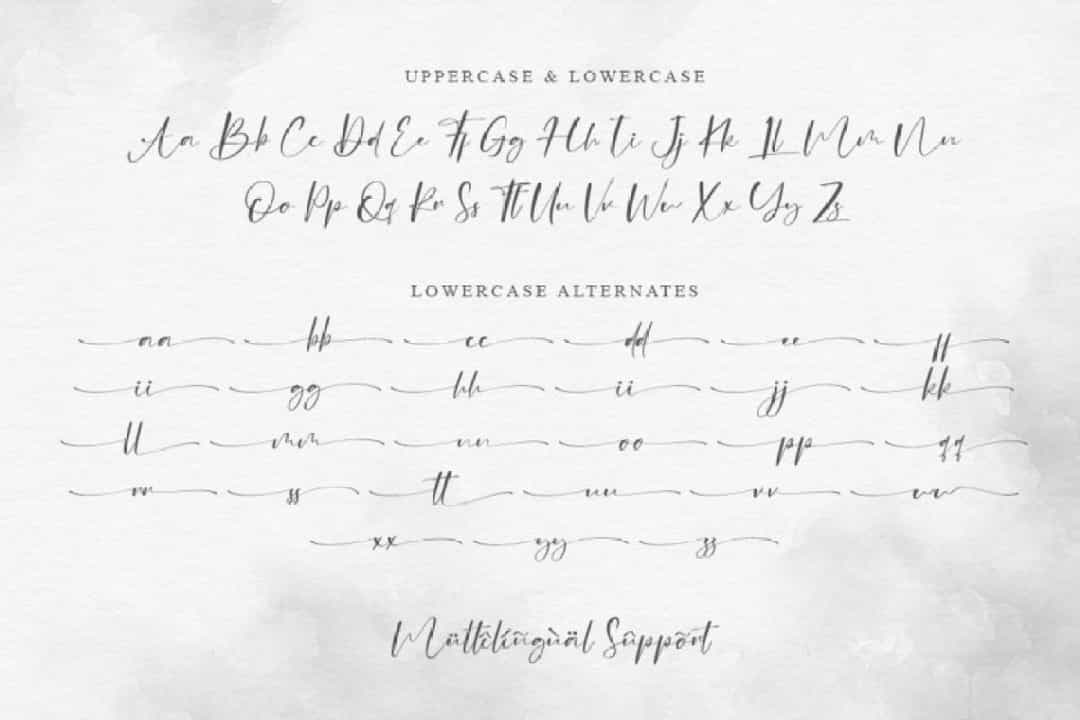 UPPERCASE & LOWERCASE
Aa Bb Cc Dd Ee Ff Gg Hh Ii Jj Kk Ll Mm Nn
Oo Pp Qq Rr Ss Tt Uu Vv Ww Xx Yy Zz
LOWERCASE ALTERNATES
aa bb cc dd ee ff
ii gg hh ii jj kk
ll mm nn oo pp qq
rr ss tt uu vv ww
xx yy zz
Mültîlíñgùäl Sûppõrt